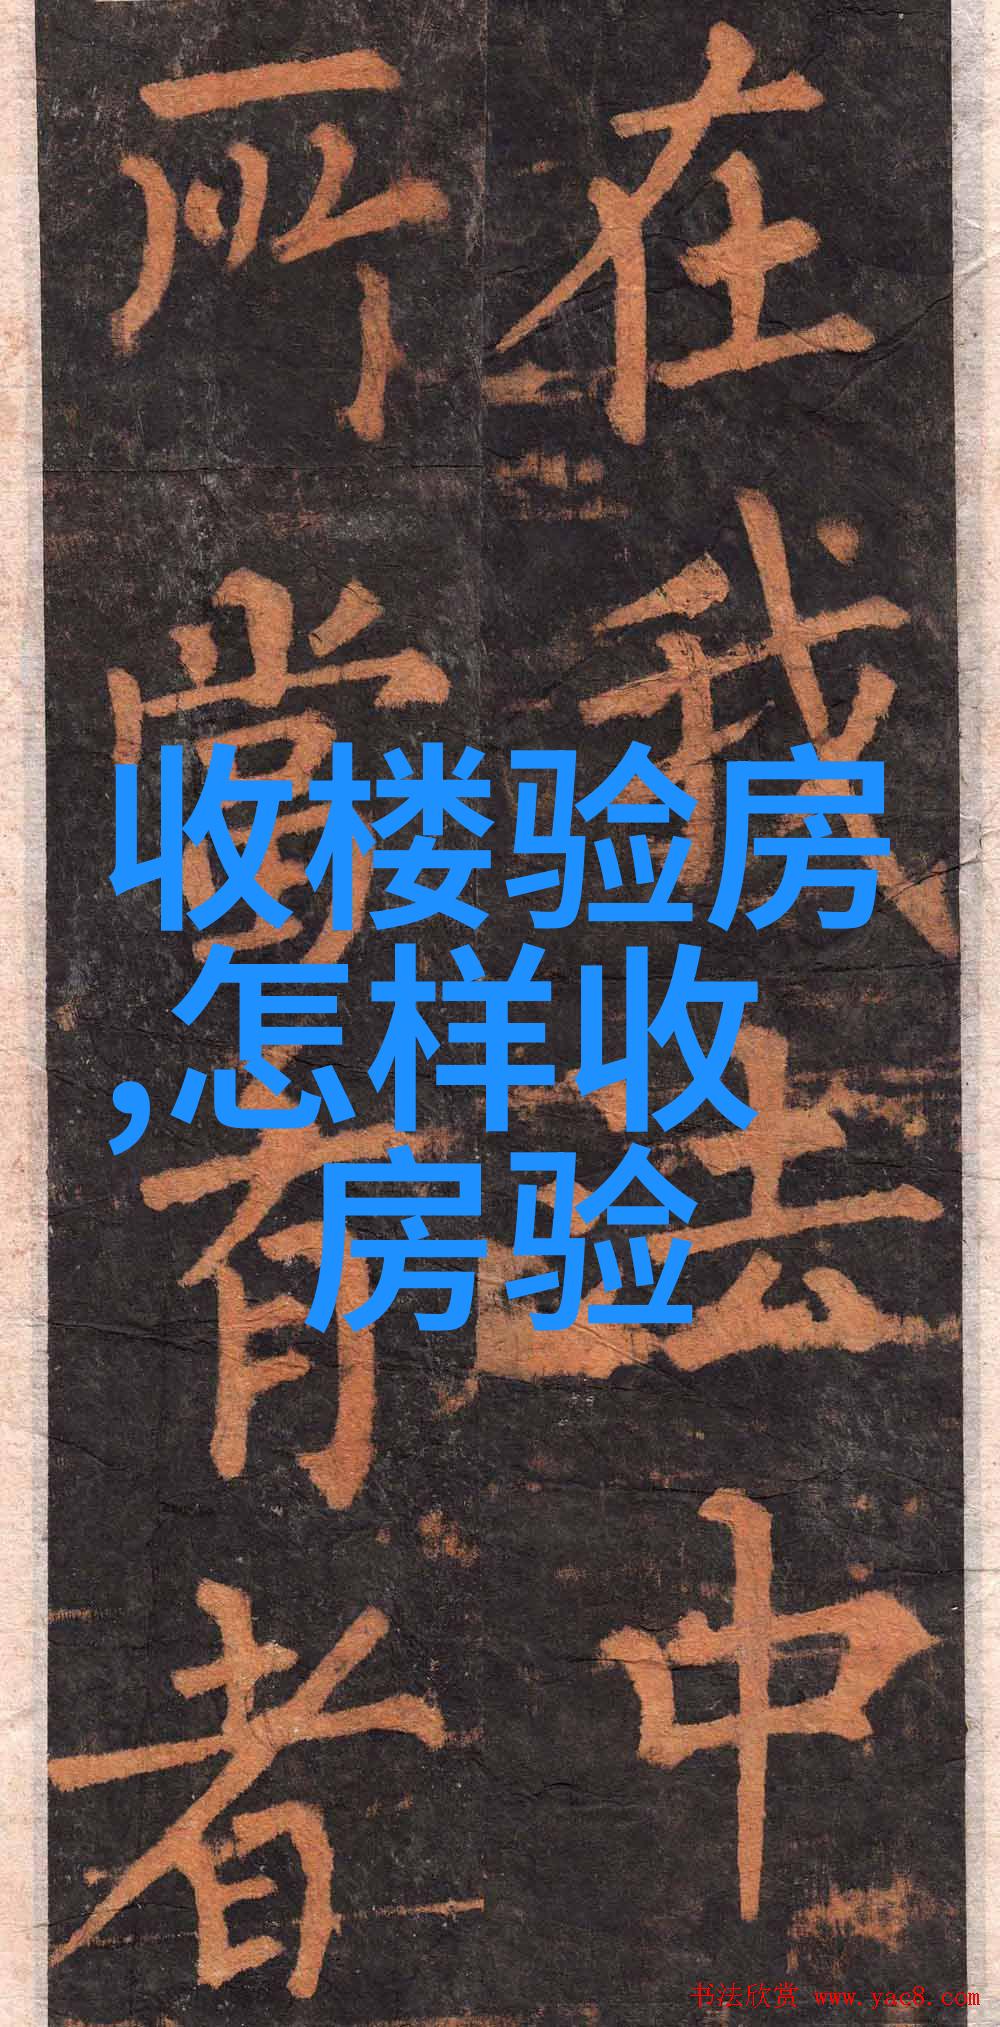 在我法中
所當有者
收楼验房
,怎样收
房验
书法欣赏 www.yac8.com